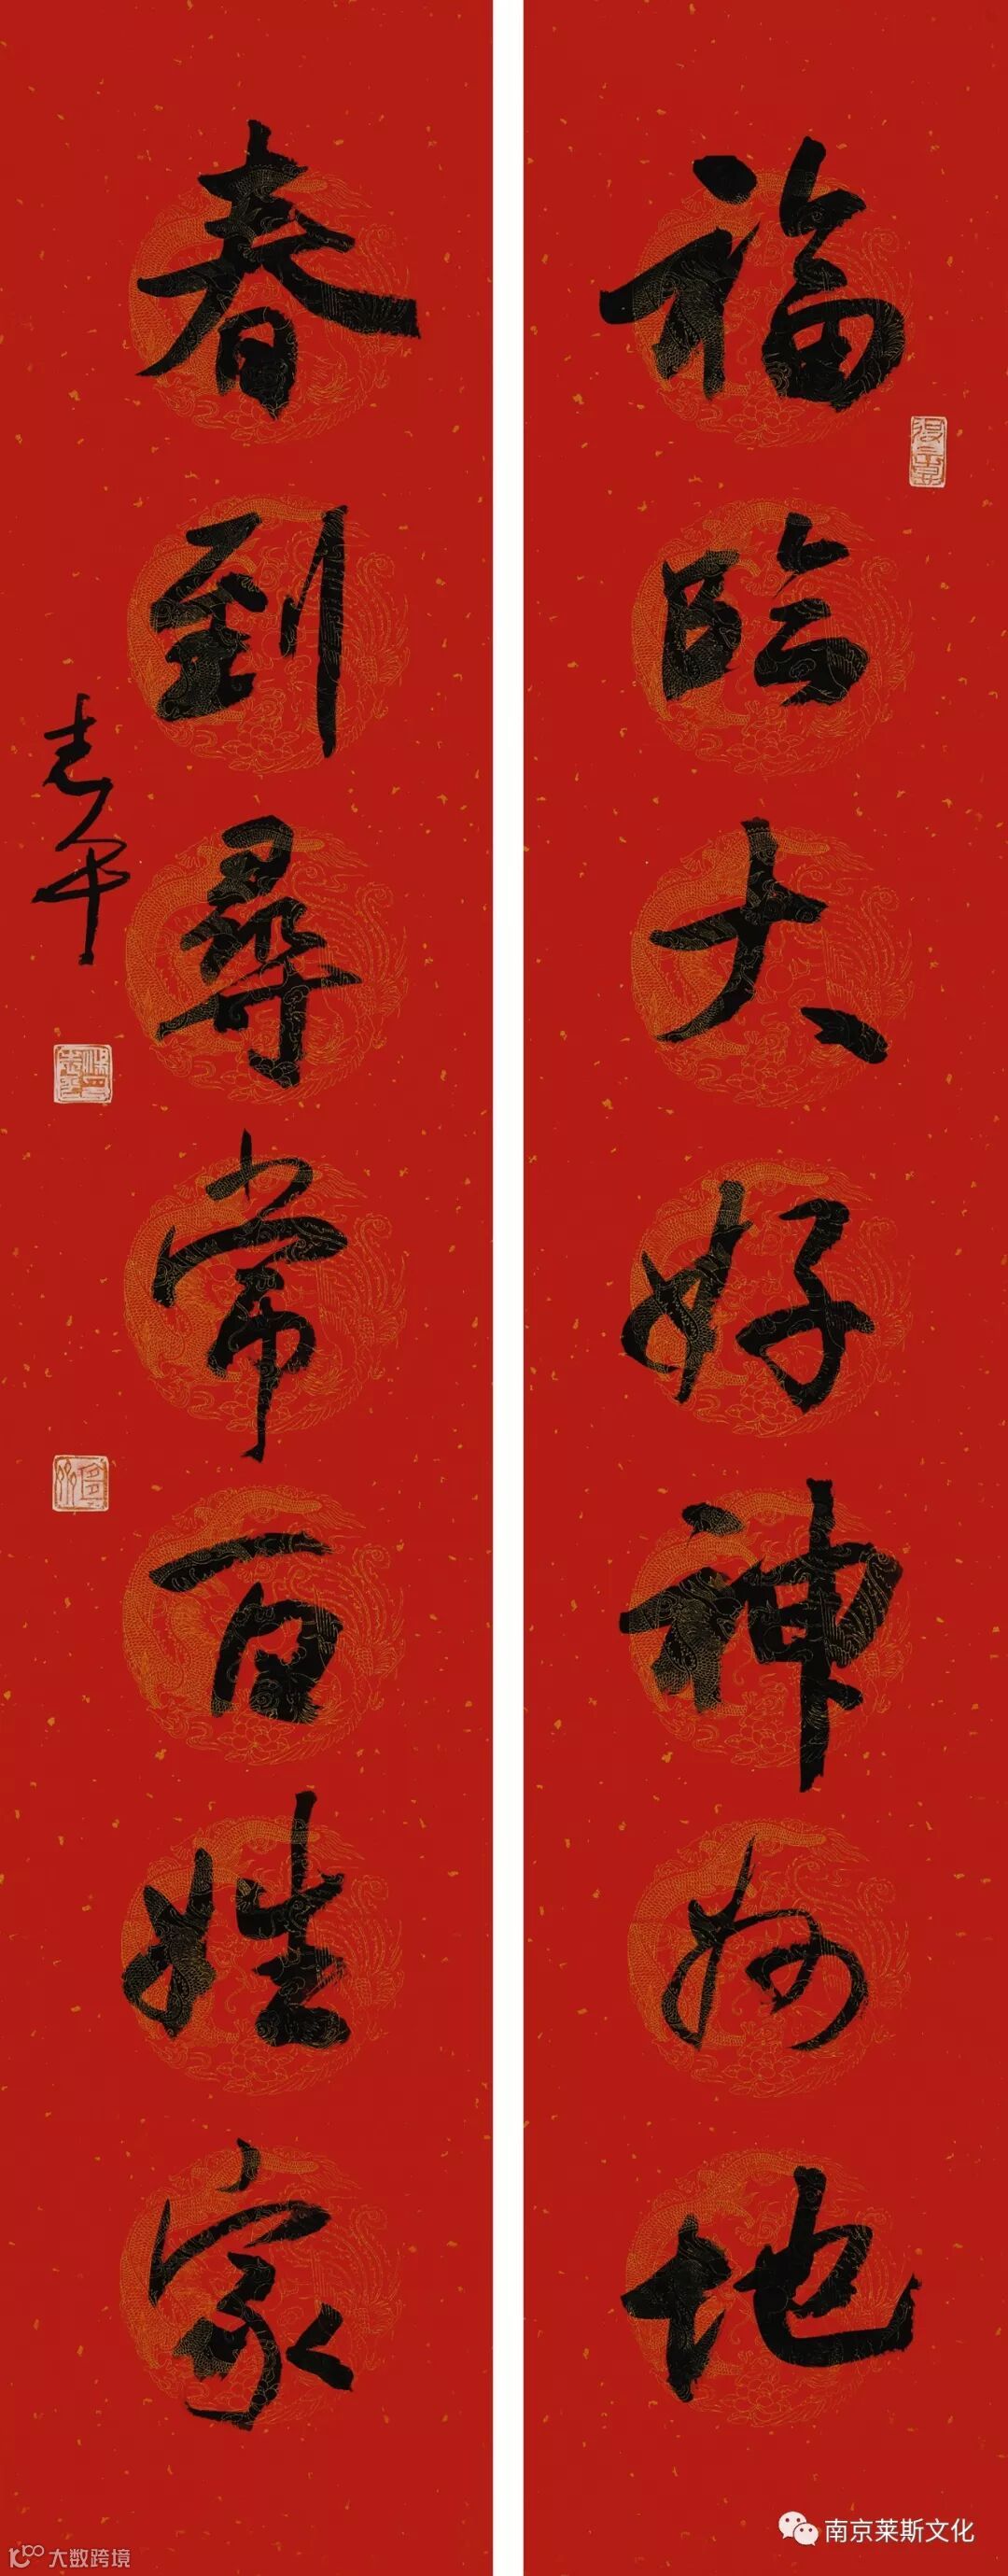 福临大好神州地
春到尋常百姓家
志平
南京莱斯文化
大数跨境